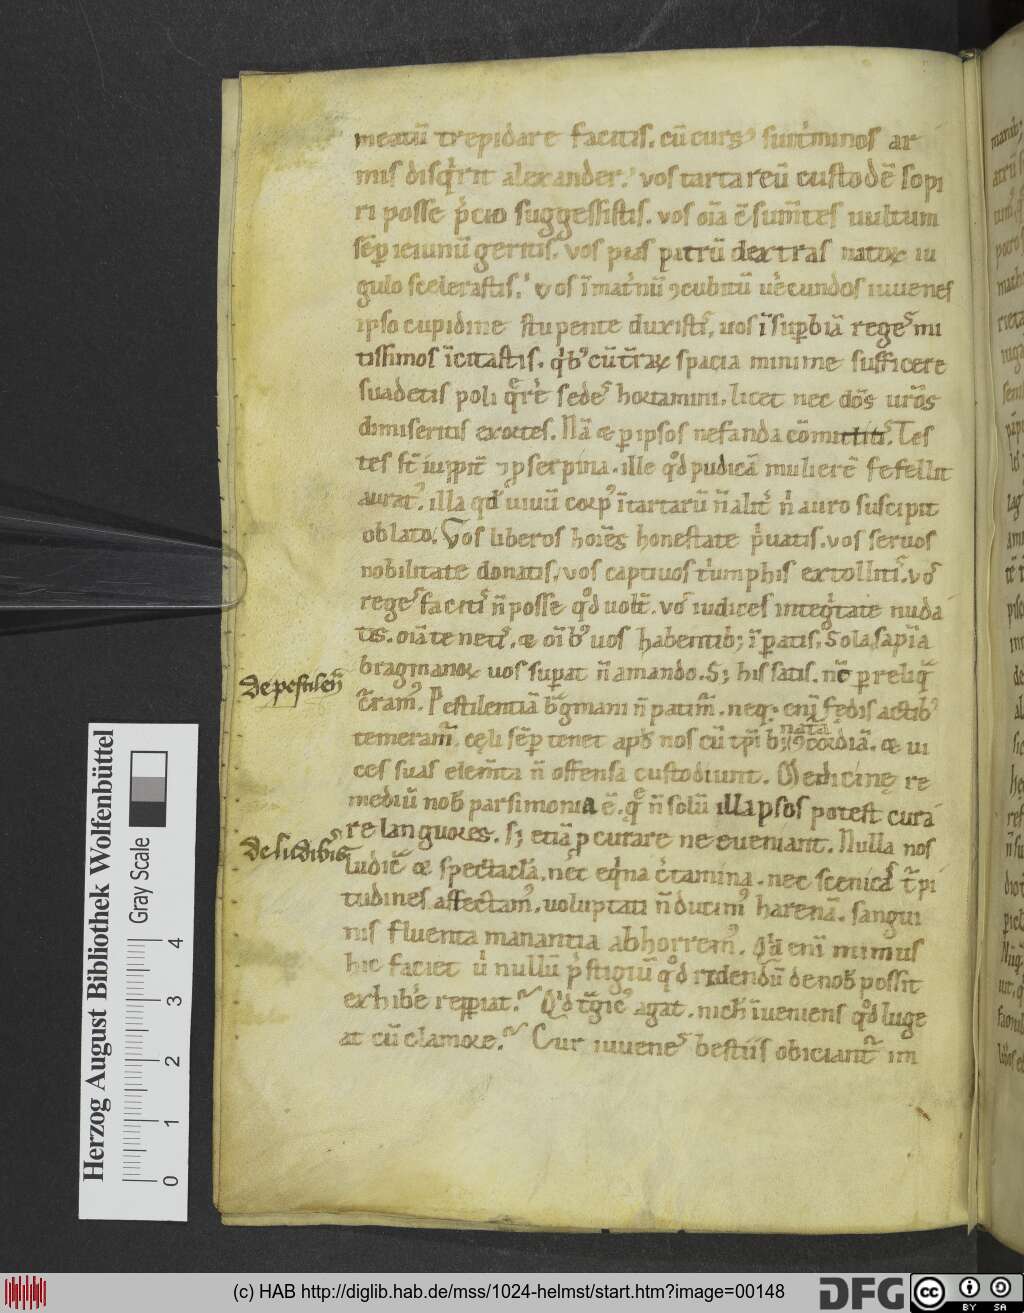 meatū trepidare facitis. cū curs⁹ sint̾minos ar
mis disq̇rit alexander. vos tartareū custodē sopi
ri posse p̄cio suggessistis. vos oīa ē sum̄tes uultum
sēp ieiunū geritis. vos pias patrū dextras natoꝝ iu
gulo scelerastis. vos ī mat̾nū ꝯcubitū uēcundos iuuenes
ipso cupidine stupente duxistis, uos ī sup̄biā reges mi
tissimos īcitastis. qͥb⁹ cū t̄raꝝ spacia minime sufficere
suadetis poli q̄re̾ sedes hortamini, licet nec dōs uros̄
dimiseritis exortes. Nā & p ipsos nefanda cōmittitis. Tes
tes st̄ iuppiť ⁊ pserpina. ille qͦd pudicā mulierē fefellit
aurat⁹. illa qd uiuū corp⁹ ī tartarū n̄ alit̾ nͥ auro suscipit
oblato. Vos liberos hoīes honestate p̄uatis. vos seruos
nobilitate donatis, vos captiuos tͥumphis extollitis. vos
reges facitis n̄ posse qͦd uolt̄. vos iudices integͥtate nuda
tis. oīa tenetis. & oīb⁹ uos habentibꝫ īpatis. Sola sapīa
bragmanoꝝ uos supat n̄ amando. Sꝫ his satis. nc̄ p reliq̄
c̄ram⁹. Pestilentiā b̄gmani n̄ patim̄. neqꝫ enī fedis actibꝰ
de pestilen̄
temeram̄. cęli sēp tenet apd nos cū tp̄ibꝫ nata ꝯcordiā. & ui
ces suas elem̄ta n̄ offensa custodiunt. Medicinę re
mediū nob parsimonia ē. q̄ n̄ solū illapsos potest cura
re languores. sꝫ etiā pcurare ne eueniant. Nulla nos
de ludibriis
ludic̄ & spectacl̄a, nec eqͥna c̄tamina. nec scenicas t̄pi
tudines affectam⁹, uoluptati n̄ ducim⁹ harenā. sangui
nis fluenta manantia abhorrem⁹. Qd enī mimus
hic faciet ul̾ nullū p̄stigiū qͦd ridendū de nob possit
exhibe̾ reppiat. Qͥd t̄gic⁹ agat. nich̾ īueniens qͦd luge
at cū clamore. Cur iuuenes bestiis obiciant̾ im
Herzog August Bibliothek Wolfenbüttel
Gray Scale
0 1 2 3 4
(c) HAB http://diglib.hab.de/mss/1024-helmst/start.htm?image=00148
DFG
cc
BY SA